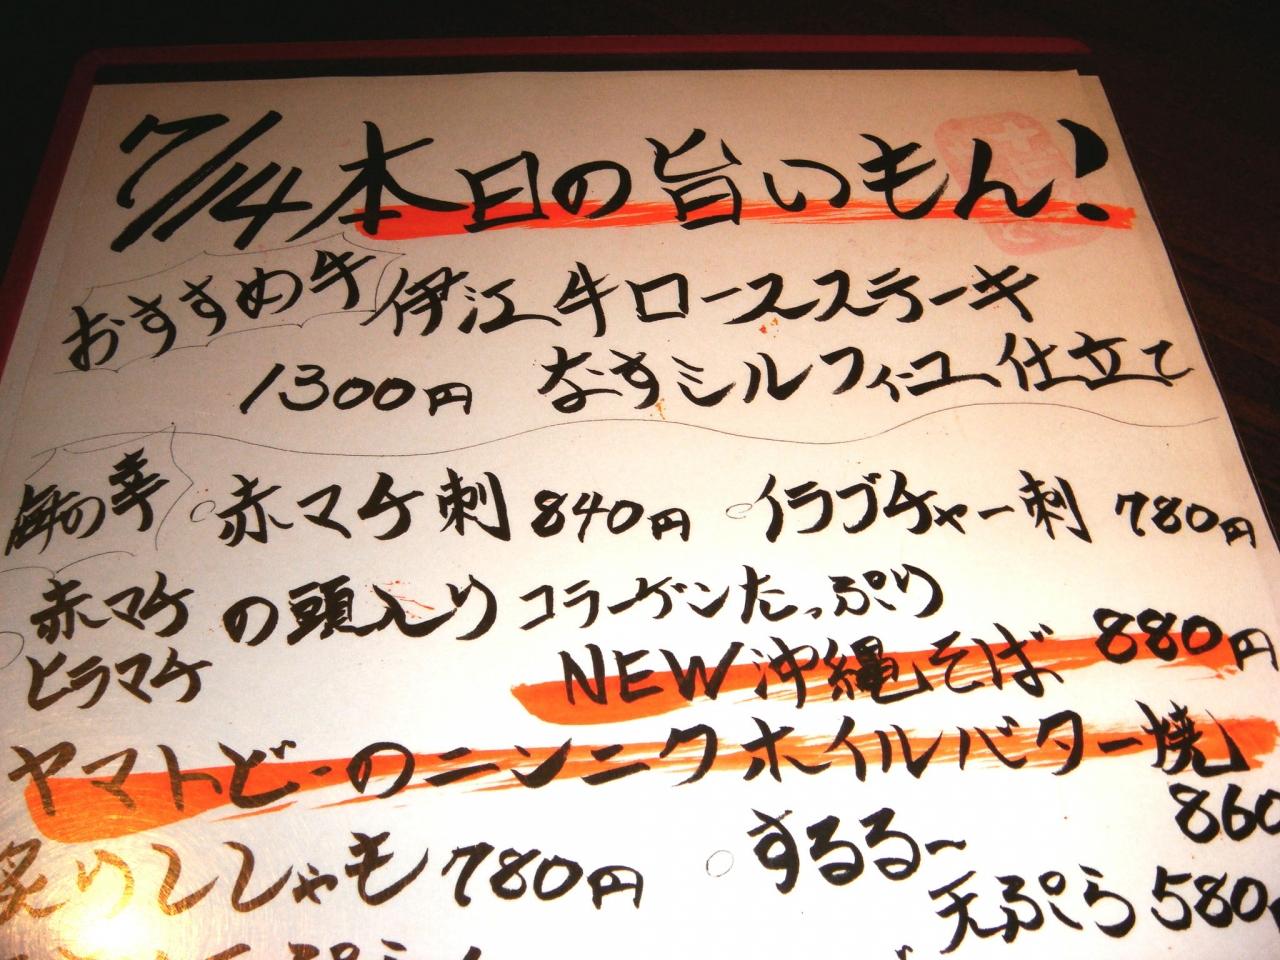 7/14 本日の旨いもん!
おすすめ牛 伊江牛ロースステーキ
1300円 なすミルフィーユ仕立て
海の幸 赤マケ刺 840円 イラブチャー刺 780円
赤マケ の頭入り コラーゲンたっぷり
ヒラマケ NEW 沖縄そば 880円
ヤマトビーのニンニクホイルバター焼
860
炙りししゃも 780円 するる～
天ぷら 580円